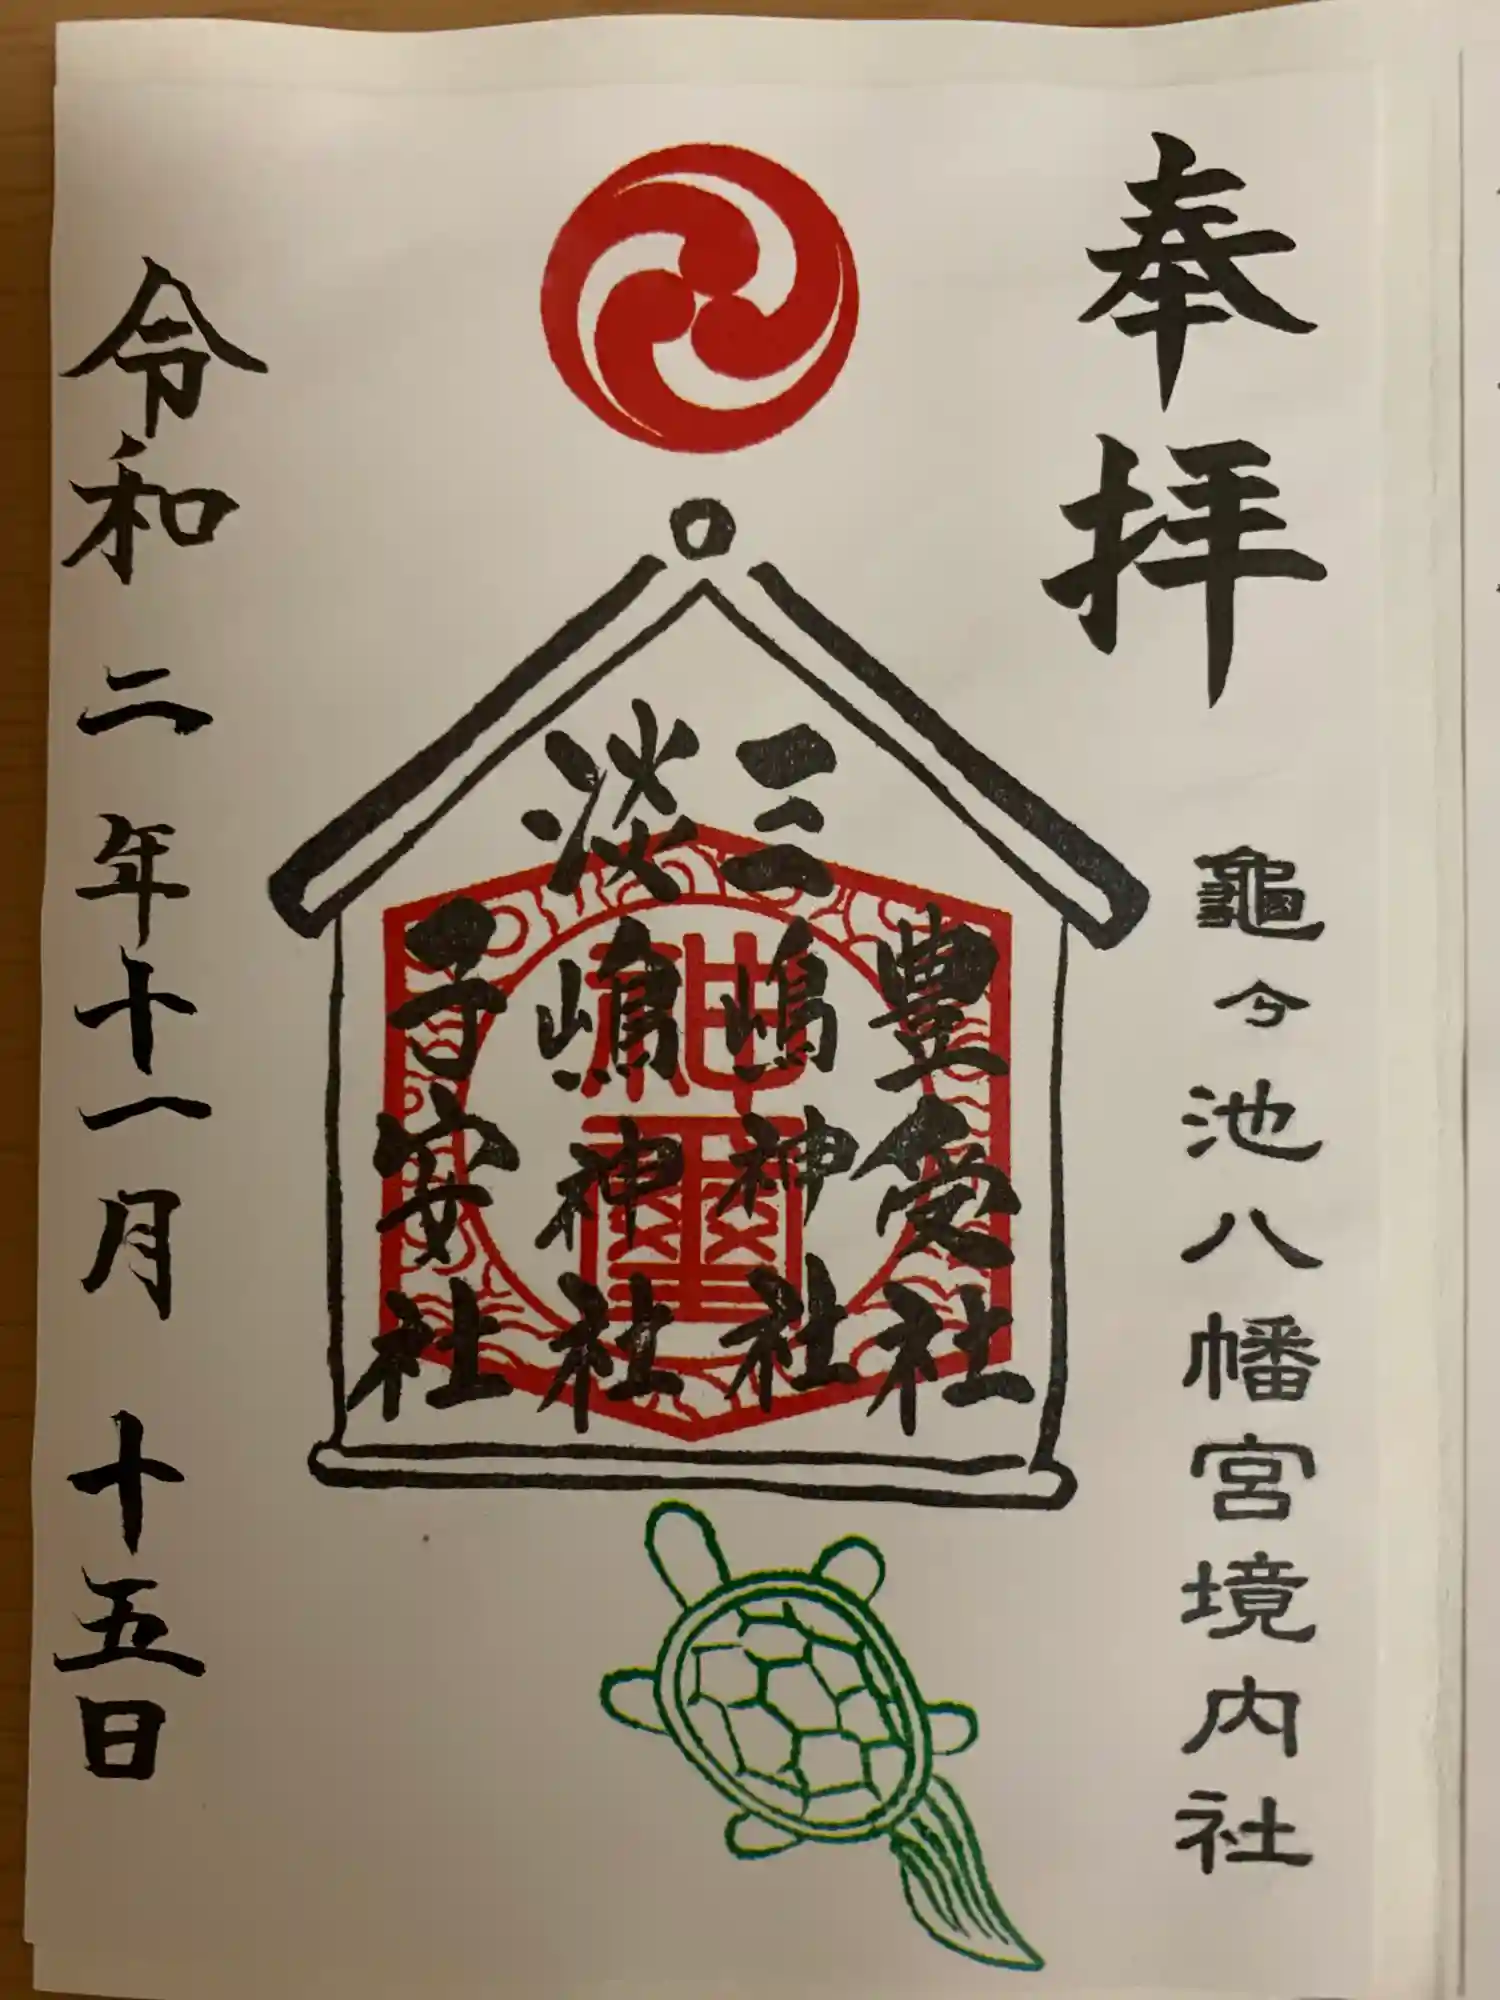 奉拝
龜ヶ池八幡宮境内社
豊受社
三嶋神社
淡嶋神社
子安社
令和二年十一月十五日